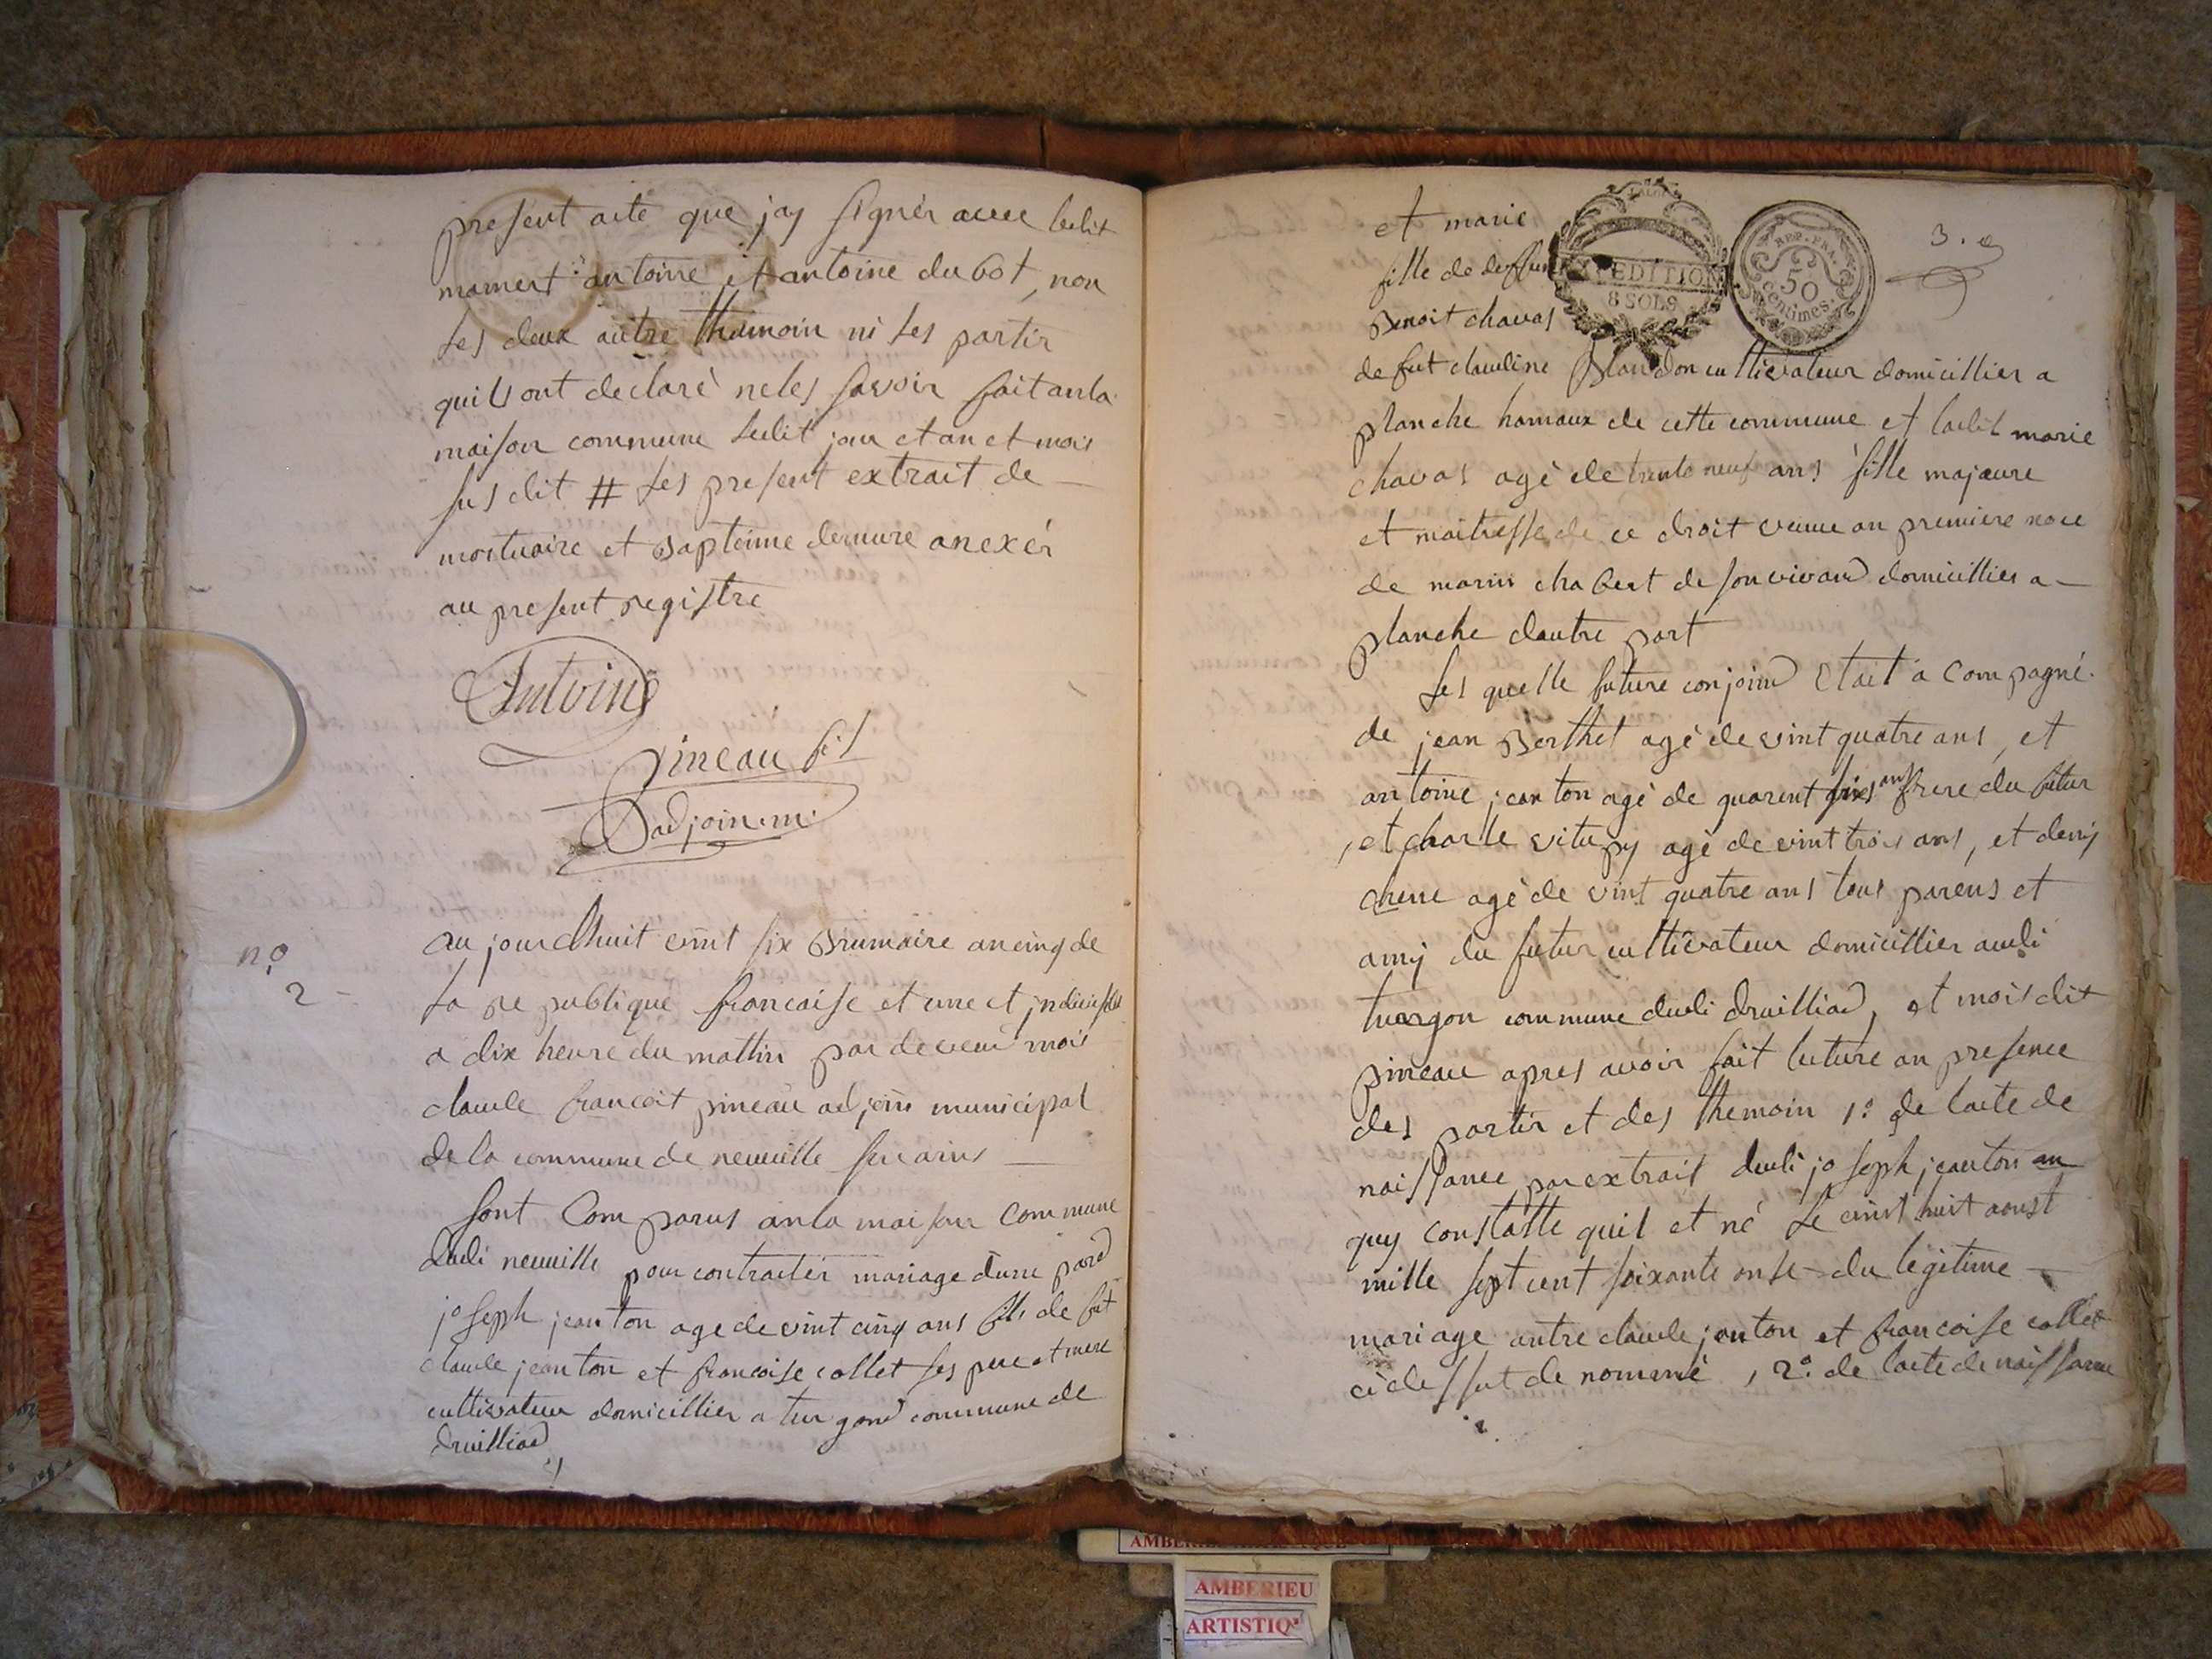 present acte que jay signér avec ledit
momert antoine et antoine dubot, non
les deux autre themoin ni les partir
quils ont declarè ne les savoir fait anla
maison commune ledit jour et an et mois
sus dit # les present extrait de
mortuaire et bapteime demure anexér
au present registre
Antoine
pineau fil
adjoin. m.
no
2
au jourdhuit vint six brumaire an cinq de
la re publique francaise et une et jndivisible
a dix heure du mattin par devent mois
claude francoit pineau adjoin municipal
de la commune de neuville sur ains
sont Com parus anla maison Commune
dudi neuville pour contracter mariage dune pard
joseph jeanton age de vint cinq ans fils de fut
claude jeanton et francoise collet ses pere et mere
cultivateur domicillier a turgond commune de
druilliad
3. e
EXPEDITION
8 SOLS
REP. FRA.
50
centimes.
et marie
fille de deffun
benoit chavas
de fut claudine blandon cultivateur domicillier a
planche hamaux de cette commune et ladit marie
chavas agè de trente neuf ans fille majeure
et maitresse de ce droit veuve an premiere noce
de marin chabert de son vivand domicillier a
planche dautre part
les quelle future conjoind Etait a Compagné
de jean berthet agè de vint quatre ans, et
antoine jeanton agè de quarent six ans frere du futur
, et charle vitupy agè de vint trois ans, et deny
chene agè de vint quatre ans tous parens et
amij du futur cultivateur domicillier audi
turgon commune dudi druilliad, et mois dit
pineau apres avoir fait lecture an presence
des partir et des themoin 1º de lacte de
naissance par extrait dudi joseph jeanton an
quy constatte quil et né le vint huit aoust
mille sept cent soixante onse du legitime
mariage antre claude jenton et francoise collet
ci dessut de nommé, 2º de lacte de naissance
AMBERIEU
ARTISTIQ